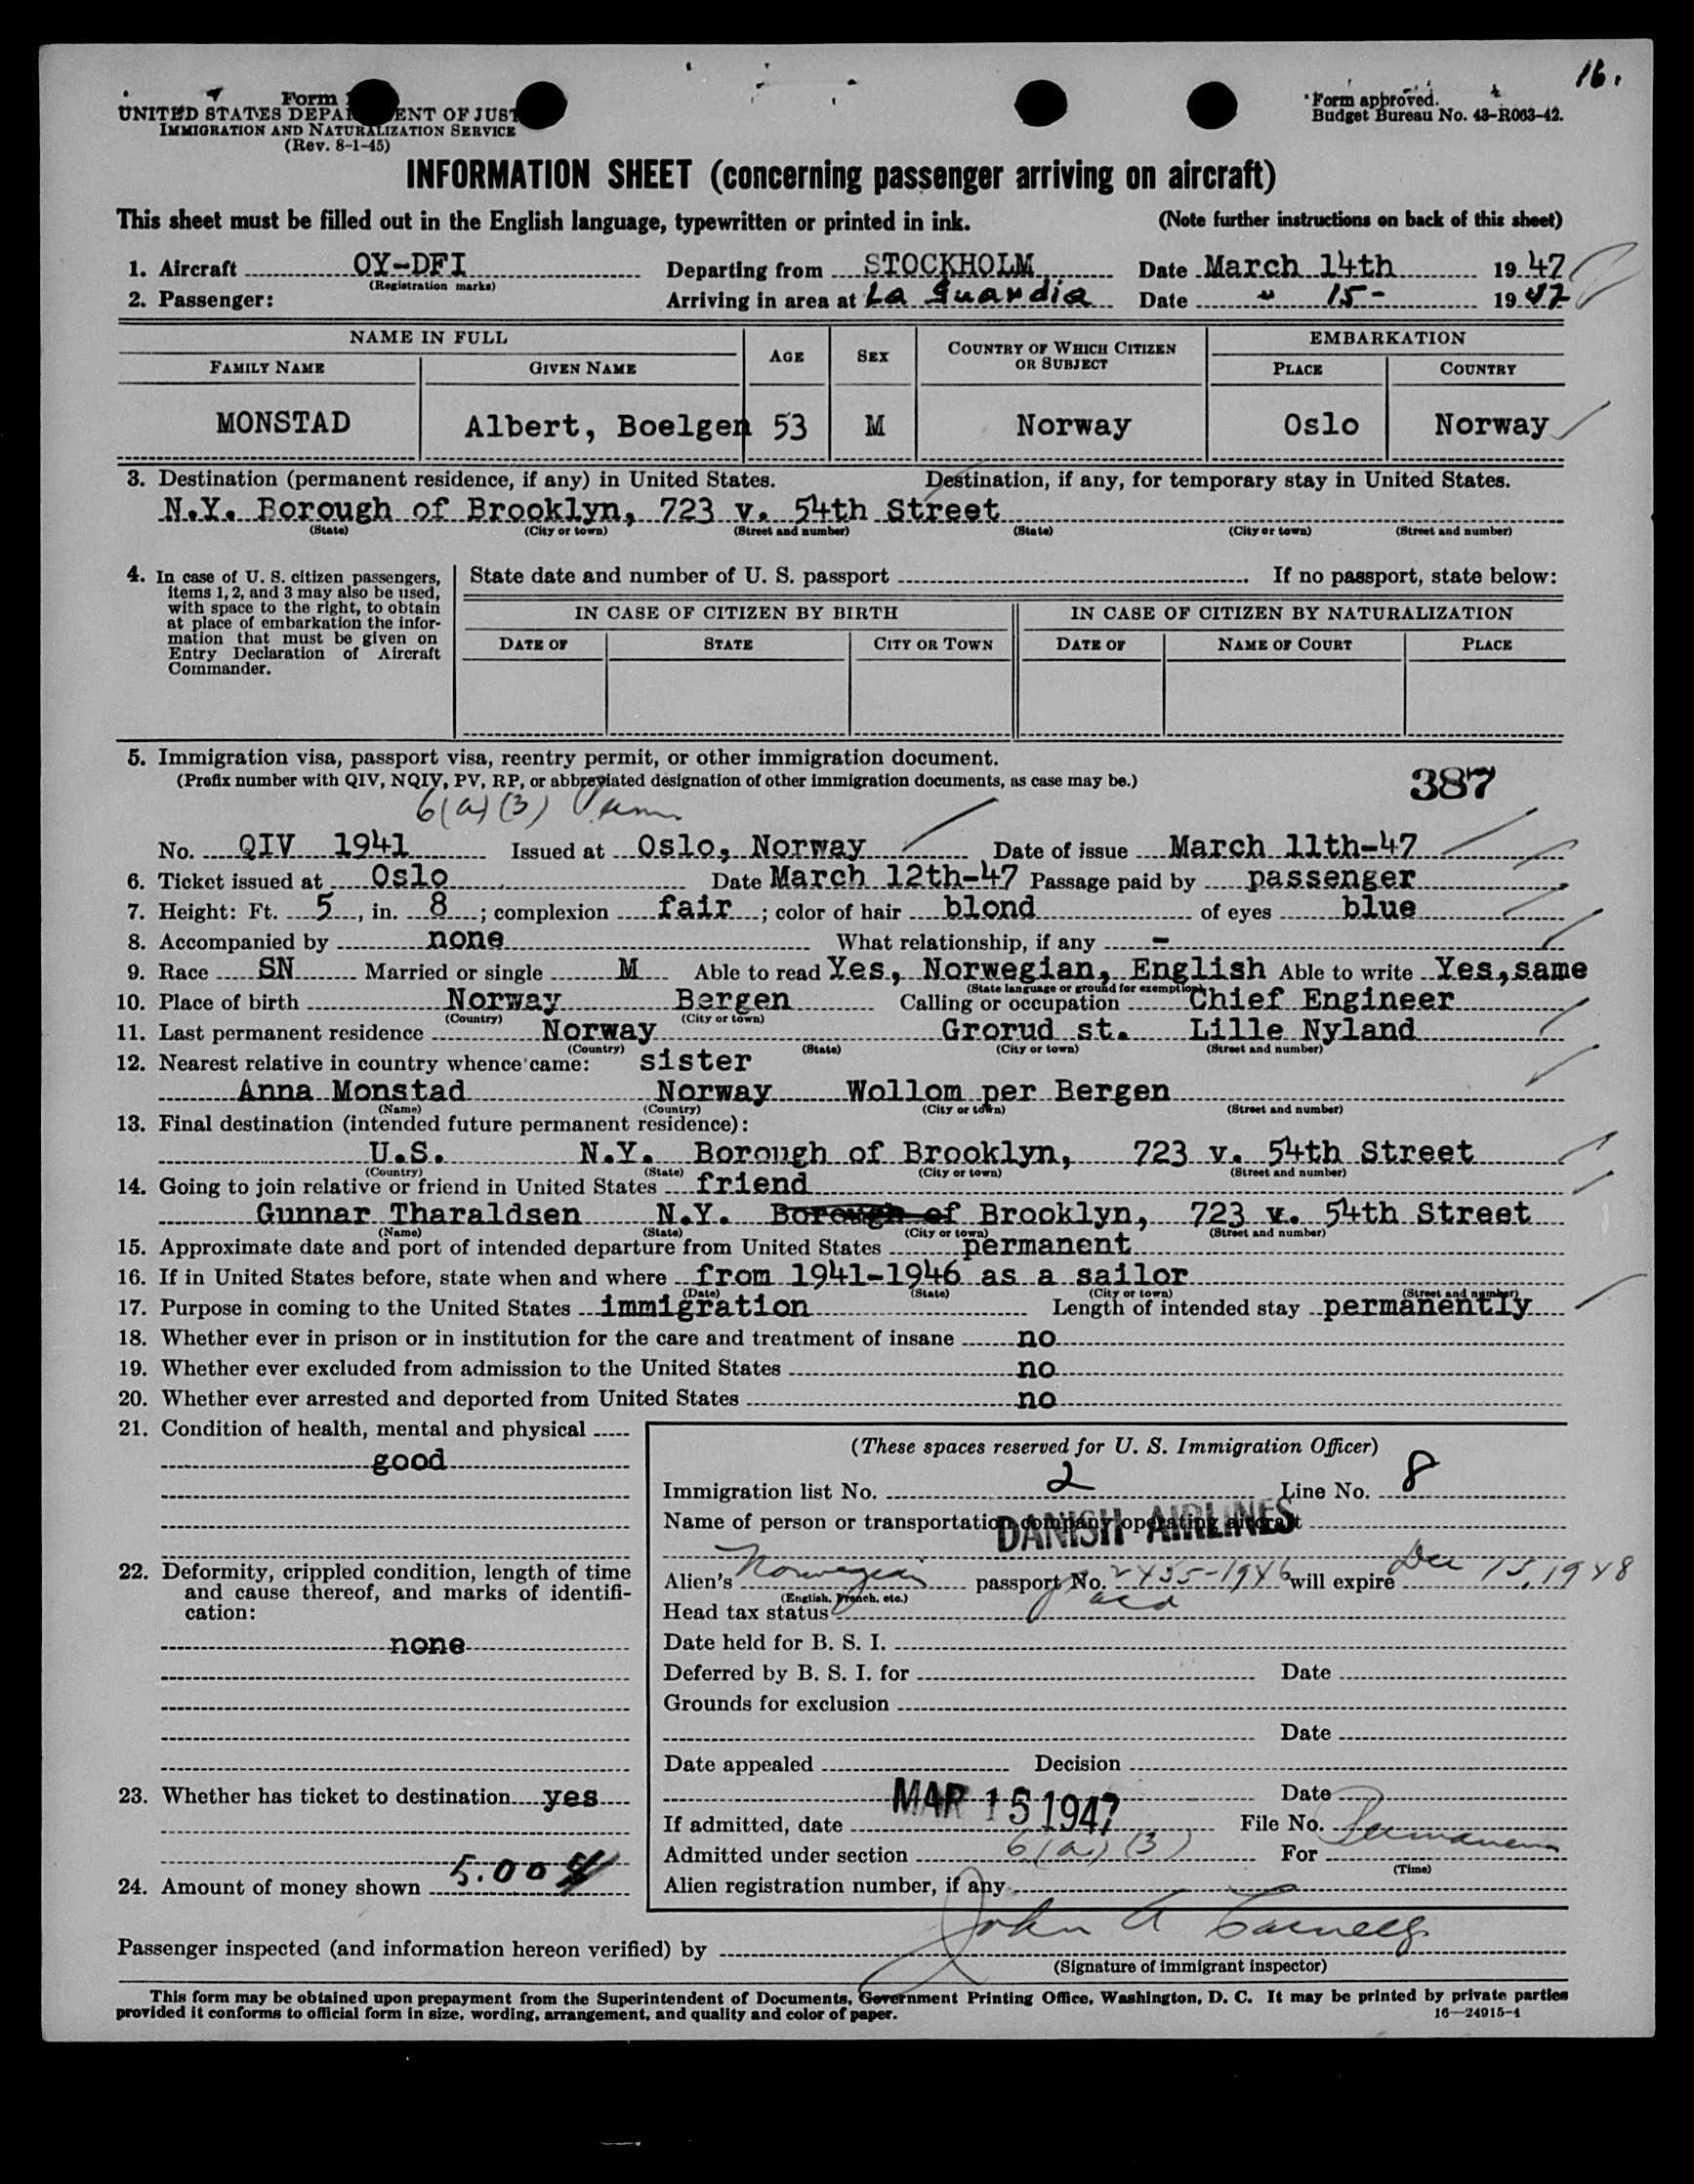 16.
Form
UNITED STATES DEPA ENT OF JUST
IMMIGRATION AND NATURALIZATION SERVICE
(Rev. 8-1-45)
Form approved.
Budget Bureau No. 43-R063-42.
INFORMATION SHEET (concerning passenger arriving on aircraft)
This sheet must be filled out in the English language, typewritten or printed in ink. (Note further instructions on back of this sheet)
1. Aircraft OY-DFI Departing from STOCKHOLM Date March 14th 1947
(Registration marks)
2. Passenger: Arriving in area at La Guardia Date " 15- 1947
NAME IN FULL AGE SEX COUNTRY OF WHICH CITIZEN OR SUBJECT EMBARKATION
FAMILY NAME GIVEN NAME PLACE COUNTRY
MONSTAD Albert, Boelgen 53 M Norway Oslo Norway
3. Destination (permanent residence, if any) in United States. Destination, if any, for temporary stay in United States.
N.Y. Borough of Brooklyn, 723 v. 54th Street
(State) (City or town) (Street and number) (State) (City or town) (Street and number)
4. In case of U. S. citizen passengers, items 1, 2, and 3 may also be used, with space to the right, to obtain at place of embarkation the information that must be given on Entry Declaration of Aircraft Commander.
State date and number of U. S. passport If no passport, state below:
IN CASE OF CITIZEN BY BIRTH IN CASE OF CITIZEN BY NATURALIZATION
DATE OF STATE CITY OR TOWN DATE OF NAME OF COURT PLACE
5. Immigration visa, passport visa, reentry permit, or other immigration document.
(Prefix number with QIV, NQIV, PV, RP, or abbreviated designation of other immigration documents, as case may be.) 387
6(a)(3)
No. QIV 1941 Issued at Oslo, Norway Date of issue March 11th-47
6. Ticket issued at Oslo Date March 12th-47 Passage paid by passenger
7. Height: Ft. 5, in. 8; complexion fair; color of hair blond of eyes blue
8. Accompanied by none What relationship, if any -
9. Race SN Married or single M Able to read Yes, Norwegian, English Able to write Yes, same
(State language or ground for exemption)
10. Place of birth Norway Bergen Calling or occupation Chief Engineer
(Country) (City or town)
11. Last permanent residence Norway Grorud st. Lille Nyland
(Country) (State) (City or town) (Street and number)
12. Nearest relative in country whence came: sister
Anna Monstad Norway Wollom per Bergen
(Name) (Country) (City or town) (Street and number)
13. Final destination (intended future permanent residence):
U.S. N.Y. Borough of Brooklyn, 723 v. 54th Street
(Country) (State) (City or town) (Street and number)
14. Going to join relative or friend in United States friend
Gunnar Tharaldsen N.Y. Borough of Brooklyn, 723 v. 54th Street
(Name) (State) (City or town) (Street and number)
15. Approximate date and port of intended departure from United States permanent
16. If in United States before, state when and where from 1941-1946 as a sailor
(Date) (State) (City or town) (Street and number)
17. Purpose in coming to the United States immigration Length of intended stay permanently
18. Whether ever in prison or in institution for the care and treatment of insane no
19. Whether ever excluded from admission to the United States no
20. Whether ever arrested and deported from United States no
21. Condition of health, mental and physical
good
22. Deformity, crippled condition, length of time and cause thereof, and marks of identification:
none
23. Whether has ticket to destination yes
24. Amount of money shown 5.00 $
(These spaces reserved for U. S. Immigration Officer)
Immigration list No. 2 Line No. 8
Name of person or transportation company operating aircraft
DANISH AIRLINES
Alien's Norwegian passport No. 2435-1946 will expire Dec 15, 1948
(English, French, etc.)
Head tax status
Date held for B. S. I.
Deferred by B. S. I. for Date
Grounds for exclusion
Date
Date appealed Decision
Date
If admitted, date MAR 15 1947 File No.
Admitted under section 6(a)(3) For Permanent
(Time)
Alien registration number, if any
Passenger inspected (and information hereon verified) by John A
(Signature of immigrant inspector)
This form may be obtained upon prepayment from the Superintendent of Documents, Government Printing Office, Washington, D. C. It may be printed by private parties
provided it conforms to official form in size, wording, arrangement, and quality and color of paper. 16—24915-1